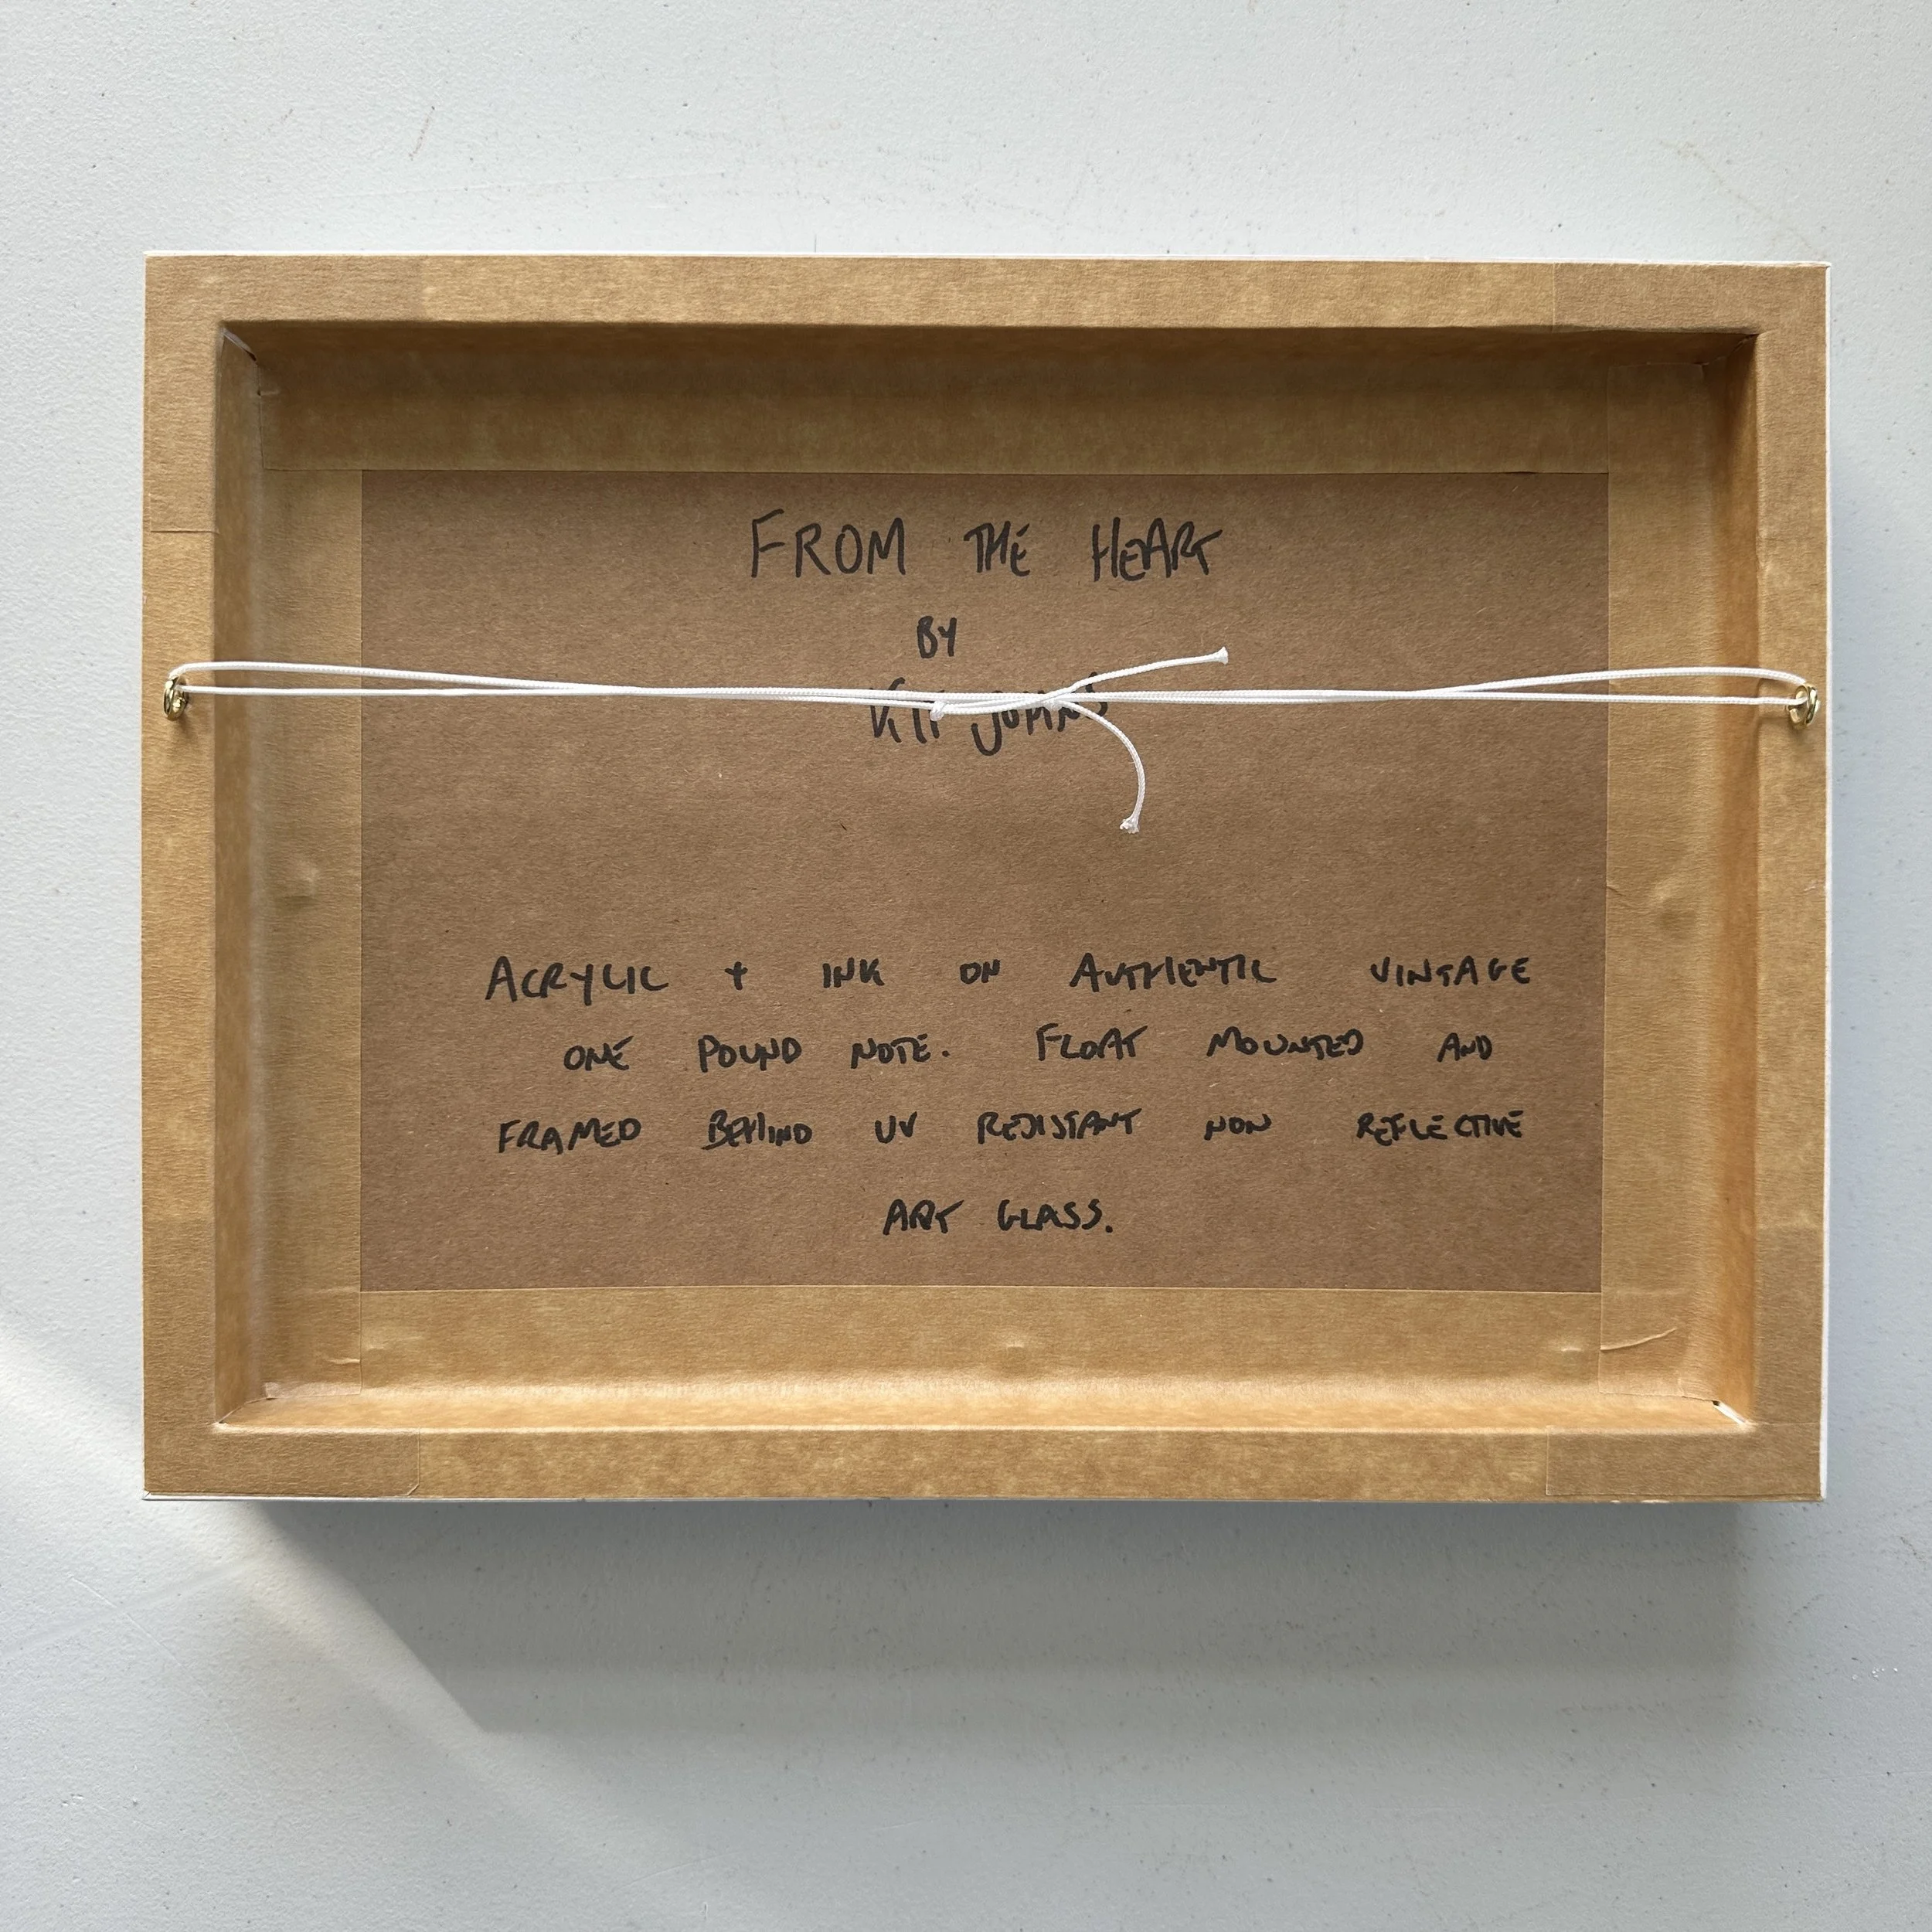 FROM THE HEART
BY
KIT JOHNS
ACRYLIC + INK ON AUTHENTIC VINTAGE
ONE POUND NOTE. FLOAT MOUNTED AND
FRAMED BEHIND UV RESISTANT NON REFLECTIVE
ART GLASS.